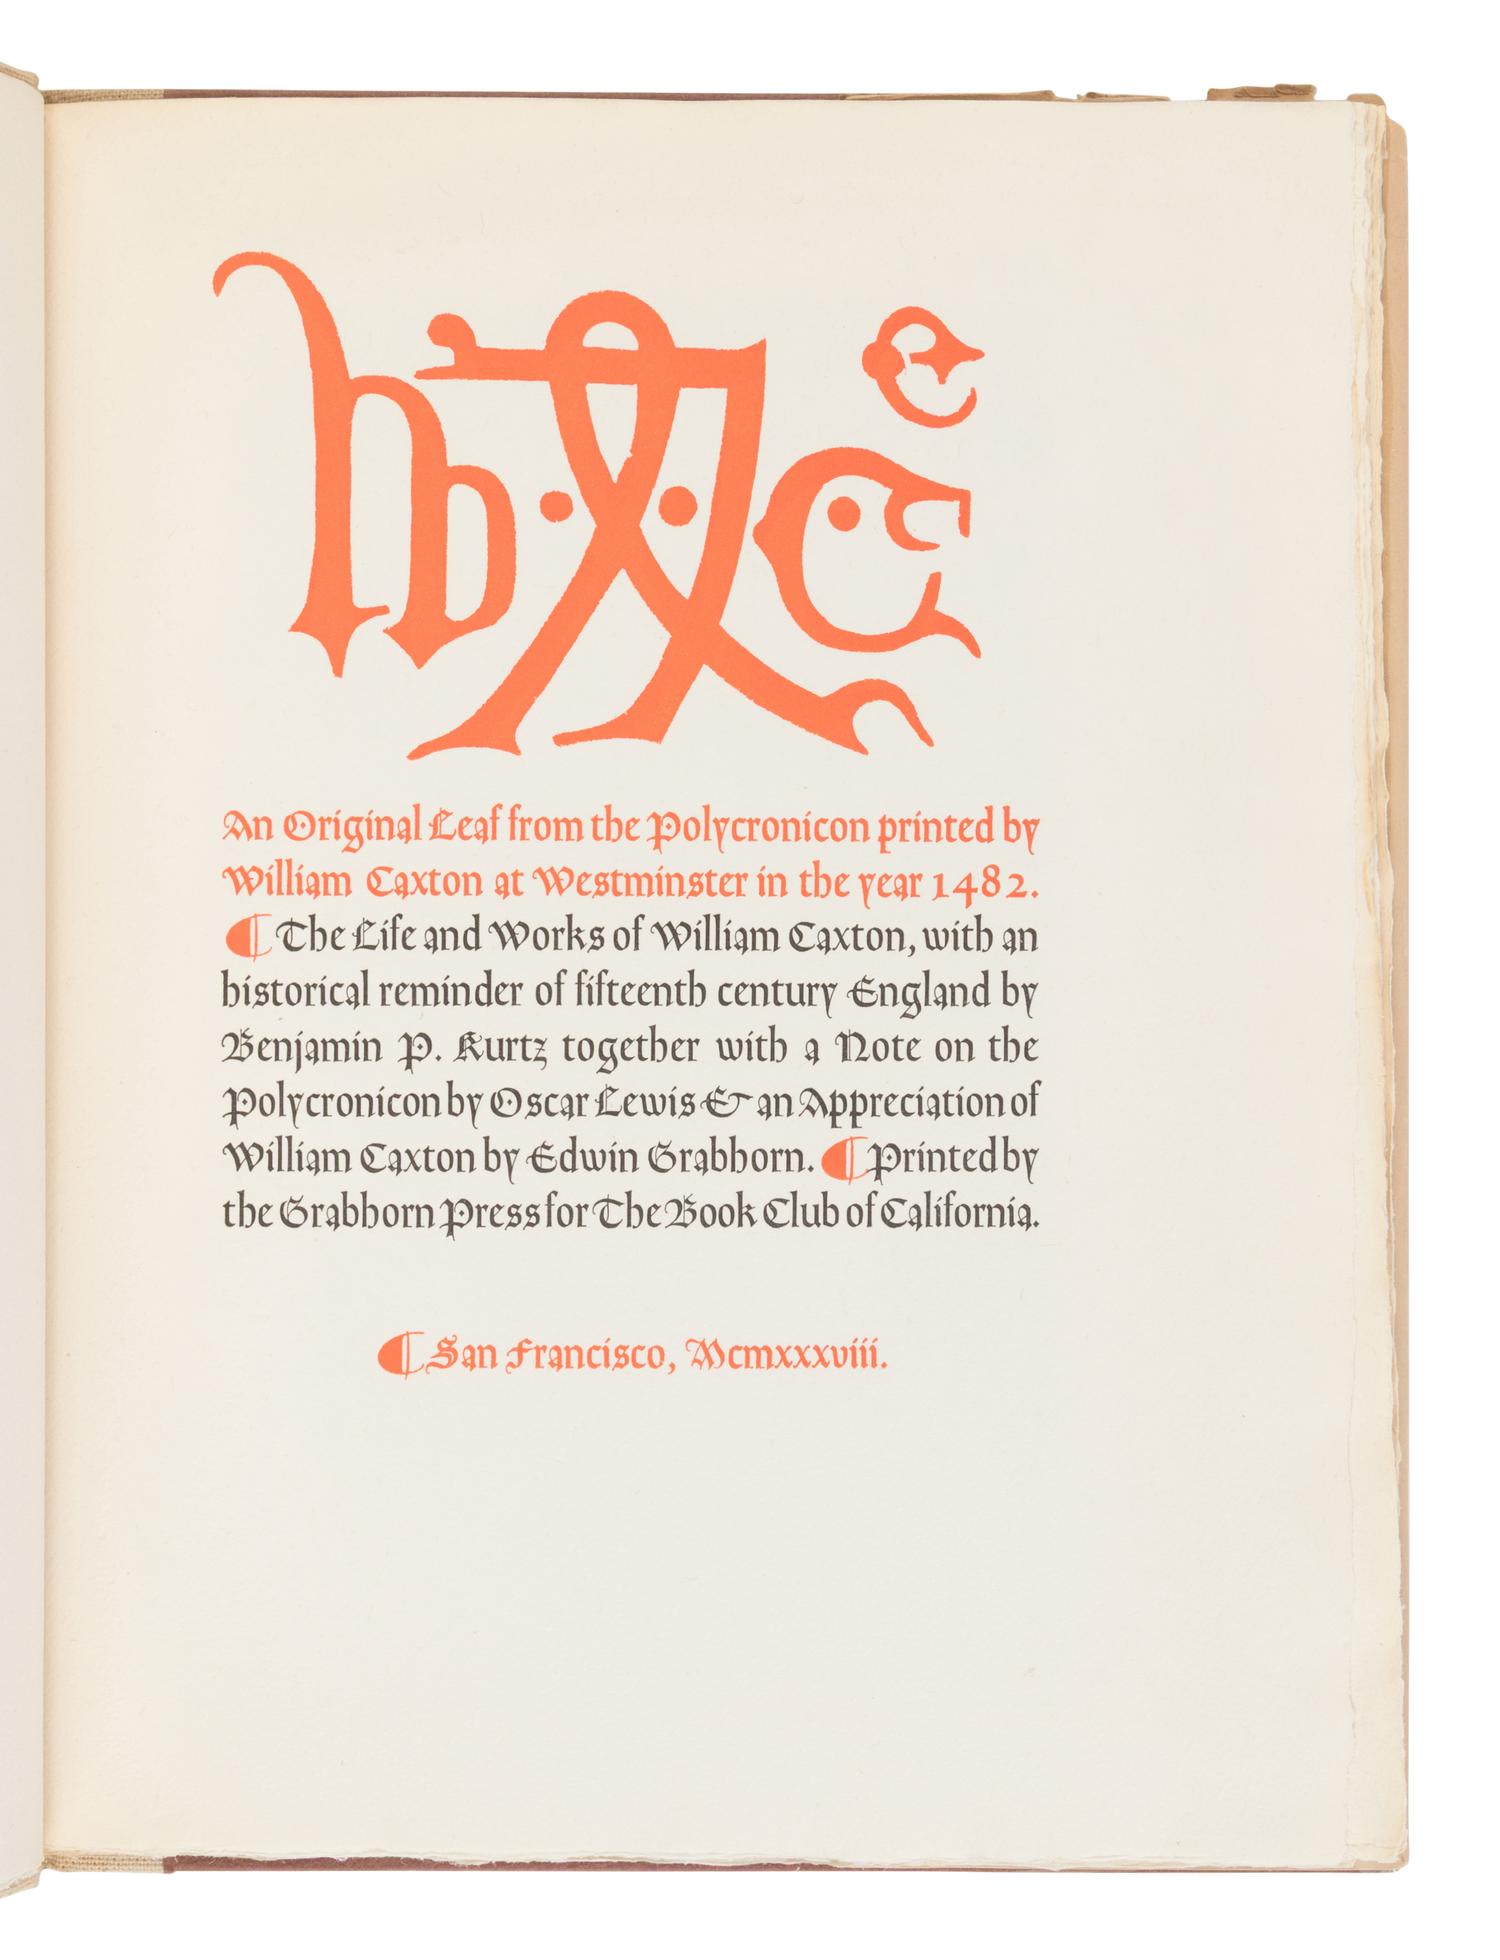 W C
An Original Leaf from the Polycronicon printed by
William Caxton at Westminster in the year 1482.
¶ The Life and Works of William Caxton, with an
historical reminder of fifteenth century England by
Benjamin P. Kurtz together with a Note on the
Polycronicon by Oscar Lewis & an Appreciation of
William Caxton by Edwin Grabhorn. ¶ Printed by
the Grabhorn Press for The Book Club of California.
¶ San Francisco, Mcmxxxviii.